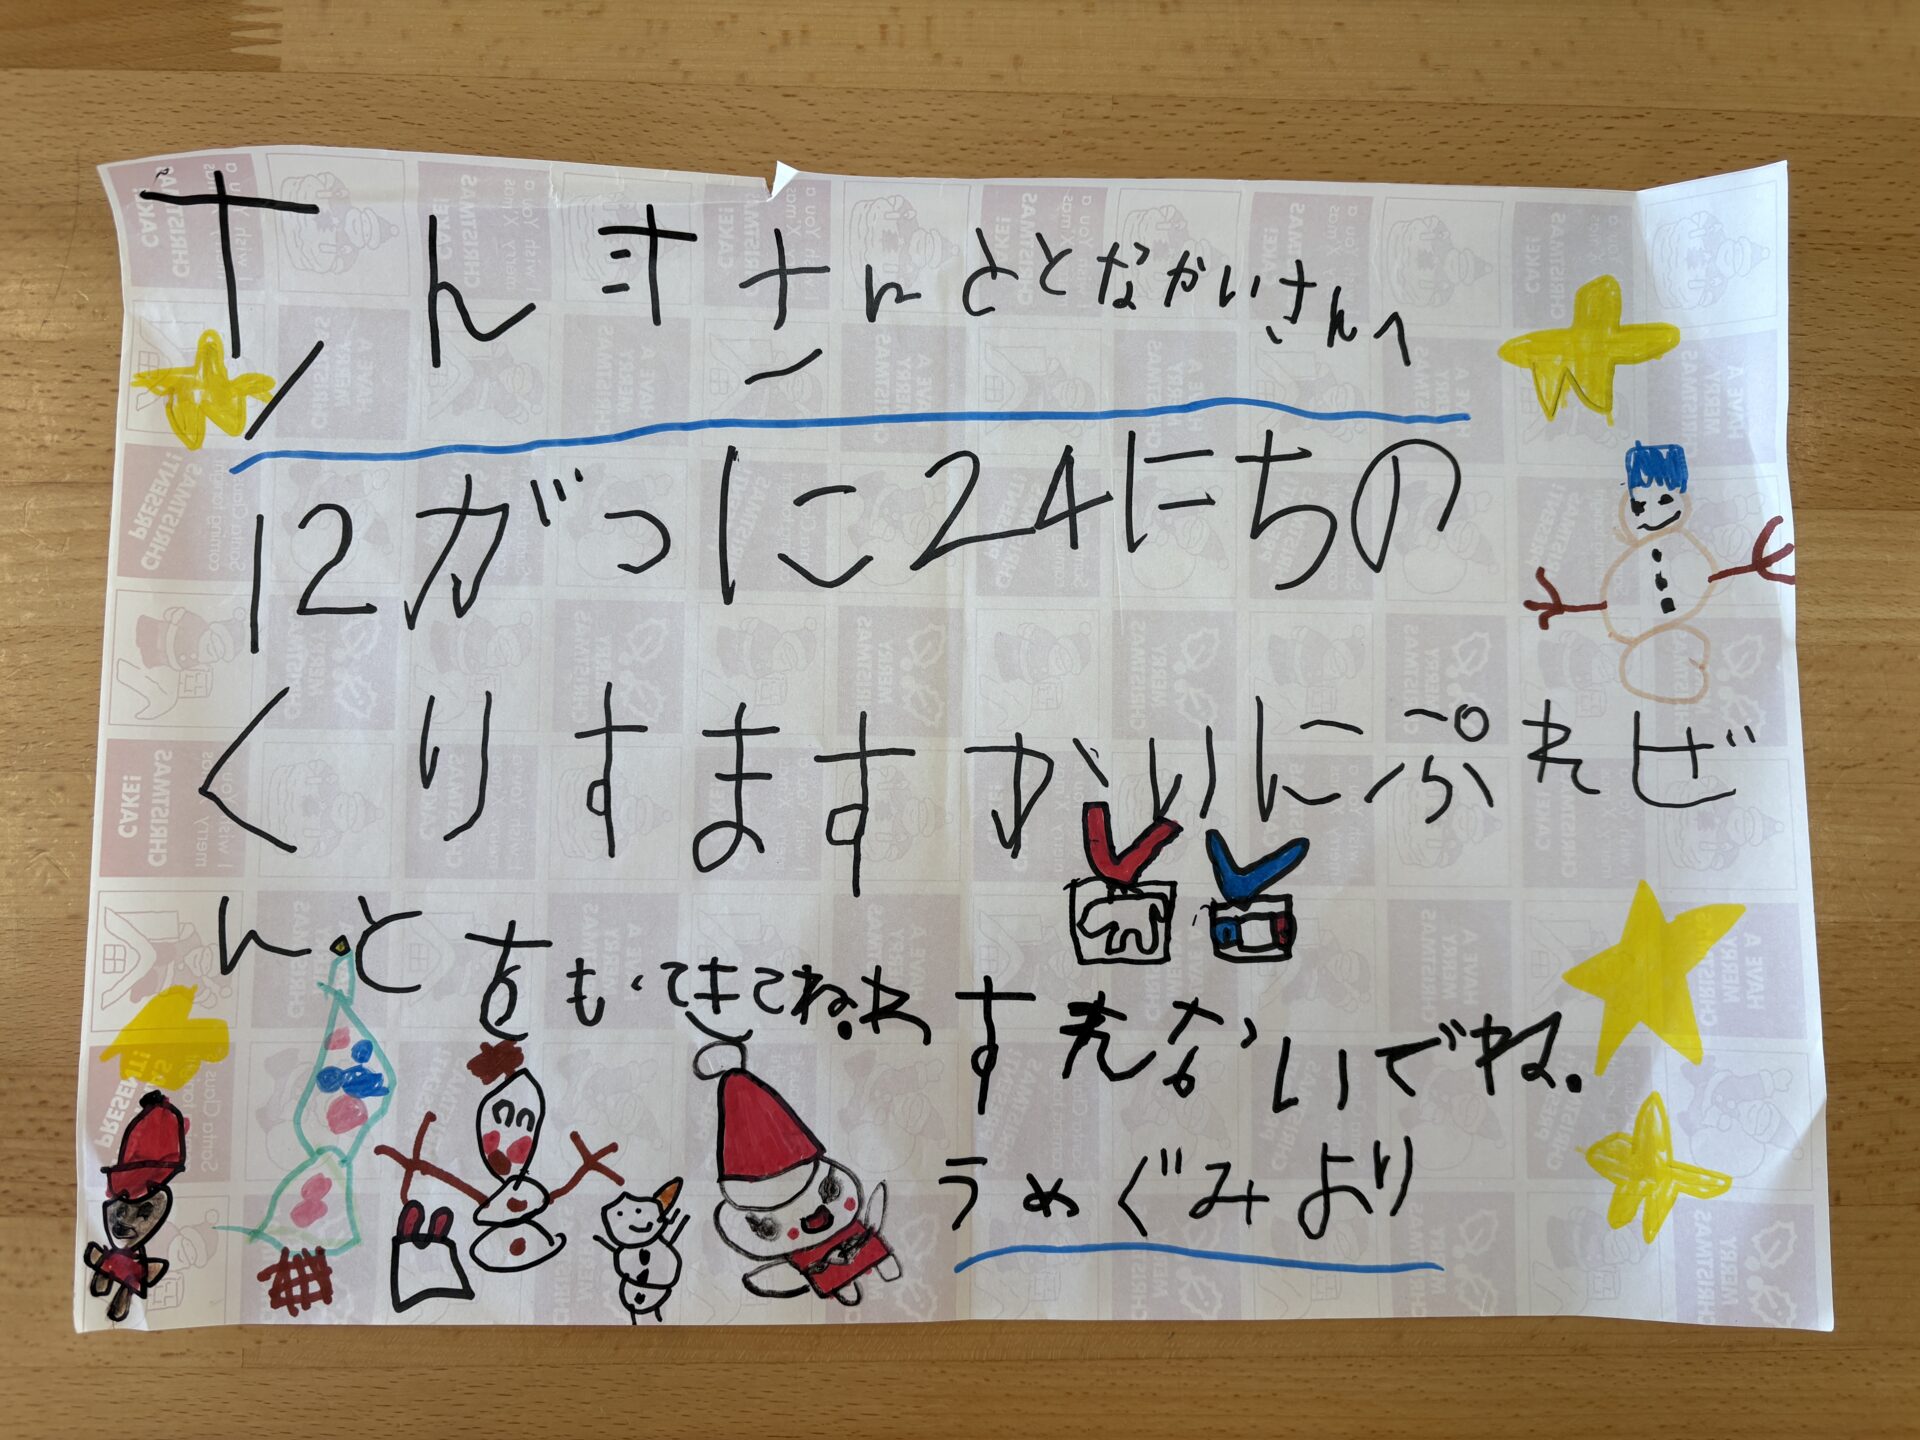 さんたさんととなかいさんへ
12がつに24にちの
くりすますかいにぷれぜ
んとをもってきてね。わすれないでね。
うめぐみより